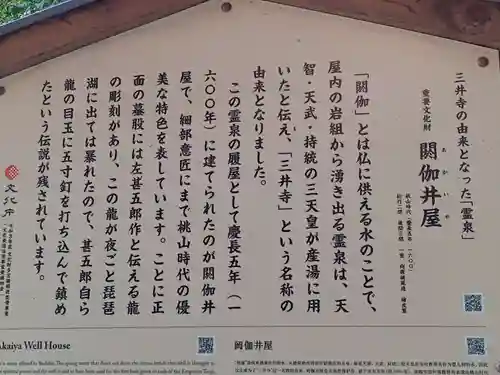 三井寺の由来となった「霊泉」
重要文化財
閼伽井屋
あかいや
桃山時代(慶長五年 一六〇〇)
桁行二間 梁間三間 一重 向唐破風造 檜皮葺
「閼伽」とは仏に供える水のことで、
屋内の岩組から湧き出る霊泉は、天
智・天武・持統の三天皇が産湯に用
いたと伝え、「三井寺」という名称の
由来となりました。
この霊泉の履屋として慶長五年(一
六〇〇年)に建てられたのが閼伽井
屋で、細部意匠にまで桃山時代の優
美な特色を表しています。ことに正
面の蟇股には左甚五郎作と伝える龍
の彫刻があり、この龍が夜ごと琵琶
湖に出ては暴れたので、甚五郎自ら
龍の目玉に五寸釘を打ち込んで鎮め
たという伝説が残されています。
文化庁
Akaiya Well House
閼伽井屋